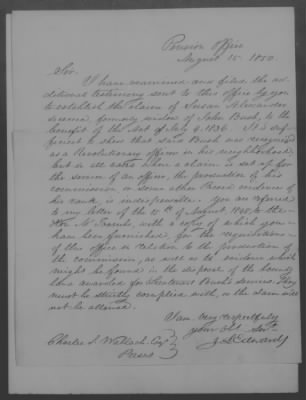 Pension Office
August 15. 1850.
Sir.
I have examined and filed the ad-
ditional testimony sent to this office by you
to establish the claim of Susan Alexander
formerly widow of John Bush, to the
benefit of the Act of July 4. 1836. It is suf-
ficient to show that said Bush was recognized
as a Revolutionary officer in his neighborhood
but in all cases when a claim is set up for
the service of an officer, the production of his
commission or some other Record evidence of
his rank, is indispensable. You are referred
to my letter of the of August 1848 to the
Hon. Mr with a copy of which you
have been furnished, for the requisitions
of this office in relation to the production of
the commission, as well as to evidence which
might be found in the disposal of the bounty
land awarded for Lieutenant Bush's services. They
must be strictly complied with, or the claim will
not be allowed.
I am very respectfully
your obt Servt.
J. L. Edwards
Charles S. Wallach Esqr
Present